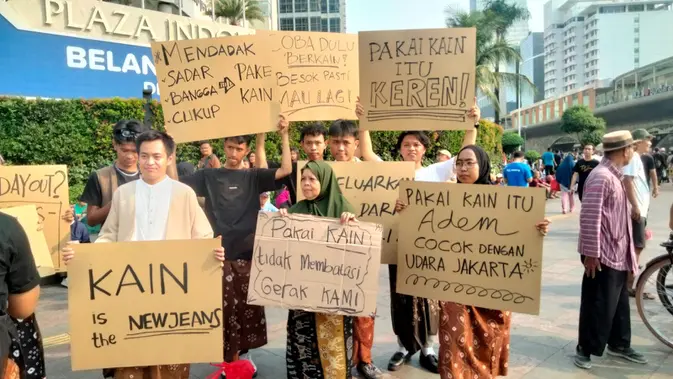 PLAZA INDONESIA
BELAN
MENDADAK
SADAR PAKE
BANGGA KAIN
CUKUP
OBA DULU
BERKAIN?
BESOK PASTI
MAU LAGI
PAKAI KAIN
ITU
KEREN!
DAY OUT?
ELUARKAN
DARI
PAKAI KAIN ITU
Adem
COCOK DENGAN
UDARA JAKARTA
Pakai KAIN
tidak Membatasi
Gerak KAMI
KAIN
is
the NEWJEANS